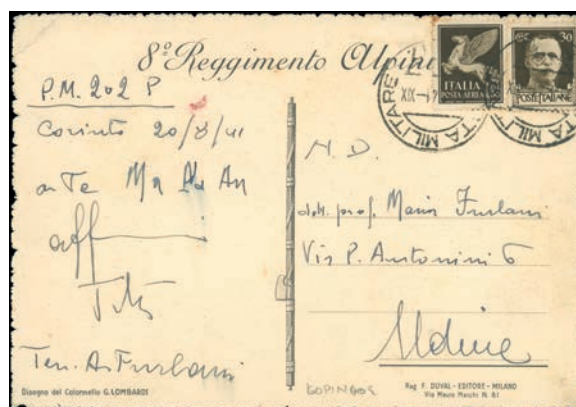 8º Reggimento Alpini
P.M. 202 P
Corinto 20/8/41
a Te Ma Na An
aff
Ten. A. Furlani
Disegno del Colonnello G. LOMBARDI
ITALIA
POSTA AEREA
30
POSTE ITALIANE
POSTA MILITARE
XIX
N. D.
dott. prof. Maria Furlani
Via P. Antonini 6
Udine
Rag. F. DUVAL - EDITORE - MILANO
Via Mauro Macchi N. 81